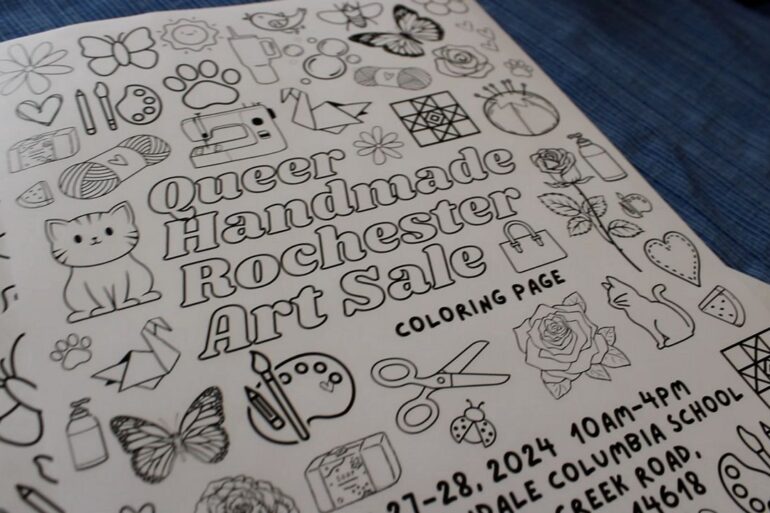 Queer
Handmade
Rochester
Art Sale
COLORING PAGE
27-28, 2024 10AM-4PM
COLUMBIA SCHOOL
CREEK ROAD,
14618
SOAP